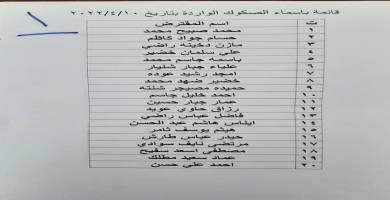 قائمة باسماء الصكوك الواردة بتاريخ ٢٠٢٢/٤/١٠
ت اسم المقترض
١ محمد صبيح محمد
٢ حسام جواد كاظم
٣ مازن دخينه راضي
٤ علي سلمان خضير
٥ باسمه جاسم محمد
٦ علياء جبار شنيار
٧ امجد رشيد عوده
٨ خضير شهد محمد
٩ حميده مصيجر شنته
١٠ احمد خليل جاسم
١١ عمار جبار حسين
١٢ رزاق حاوي عويد
١٣ فاضل عباس راضي
١٤ ايناس هاشم عبد الحسن
١٥ هيثم يوسف ثامر
١٦ حيدر عباس طارش
١٧ مرتضى نايف سوادي
١٨ مصطفى اسعد سفيح
١٩ عماد سعيد مطلك
٢٠ احمد علي حسن